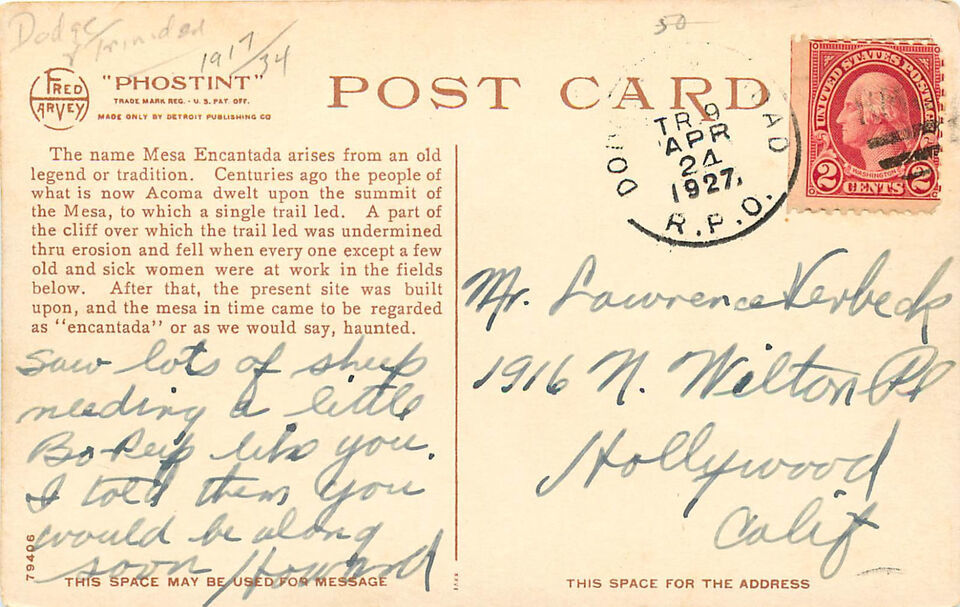 Dodge
& Trinidad
1917/34
50
FRED
HARVEY
"PHOSTINT"
TRADE MARK REG. - U.S. PAT. OFF.
MADE ONLY BY DETROIT PUBLISHING CO
POST CARD
TR. 9
APR
24
1927,
R.P.O.
UNITED STATES POSTAGE
WASHINGTON
2 CENTS 2
The name Mesa Encantada arises from an old
legend or tradition. Centuries ago the people of
what is now Acoma dwelt upon the summit of
the Mesa, to which a single trail led. A part of
the cliff over which the trail led was undermined
thru erosion and fell when every one except a few
old and sick women were at work in the fields
below. After that, the present site was built
upon, and the mesa in time came to be regarded
as "encantada" or as we would say, haunted.
Saw lots of sheep
needing a little
Bo-Peep like you.
I told them you
would be along
soon Howard
Mr. Lawrence Verbeck
1916 N. Wilton Pl
Hollywood
Calif
79406
THIS SPACE MAY BE USED FOR MESSAGE
THIS SPACE FOR THE ADDRESS